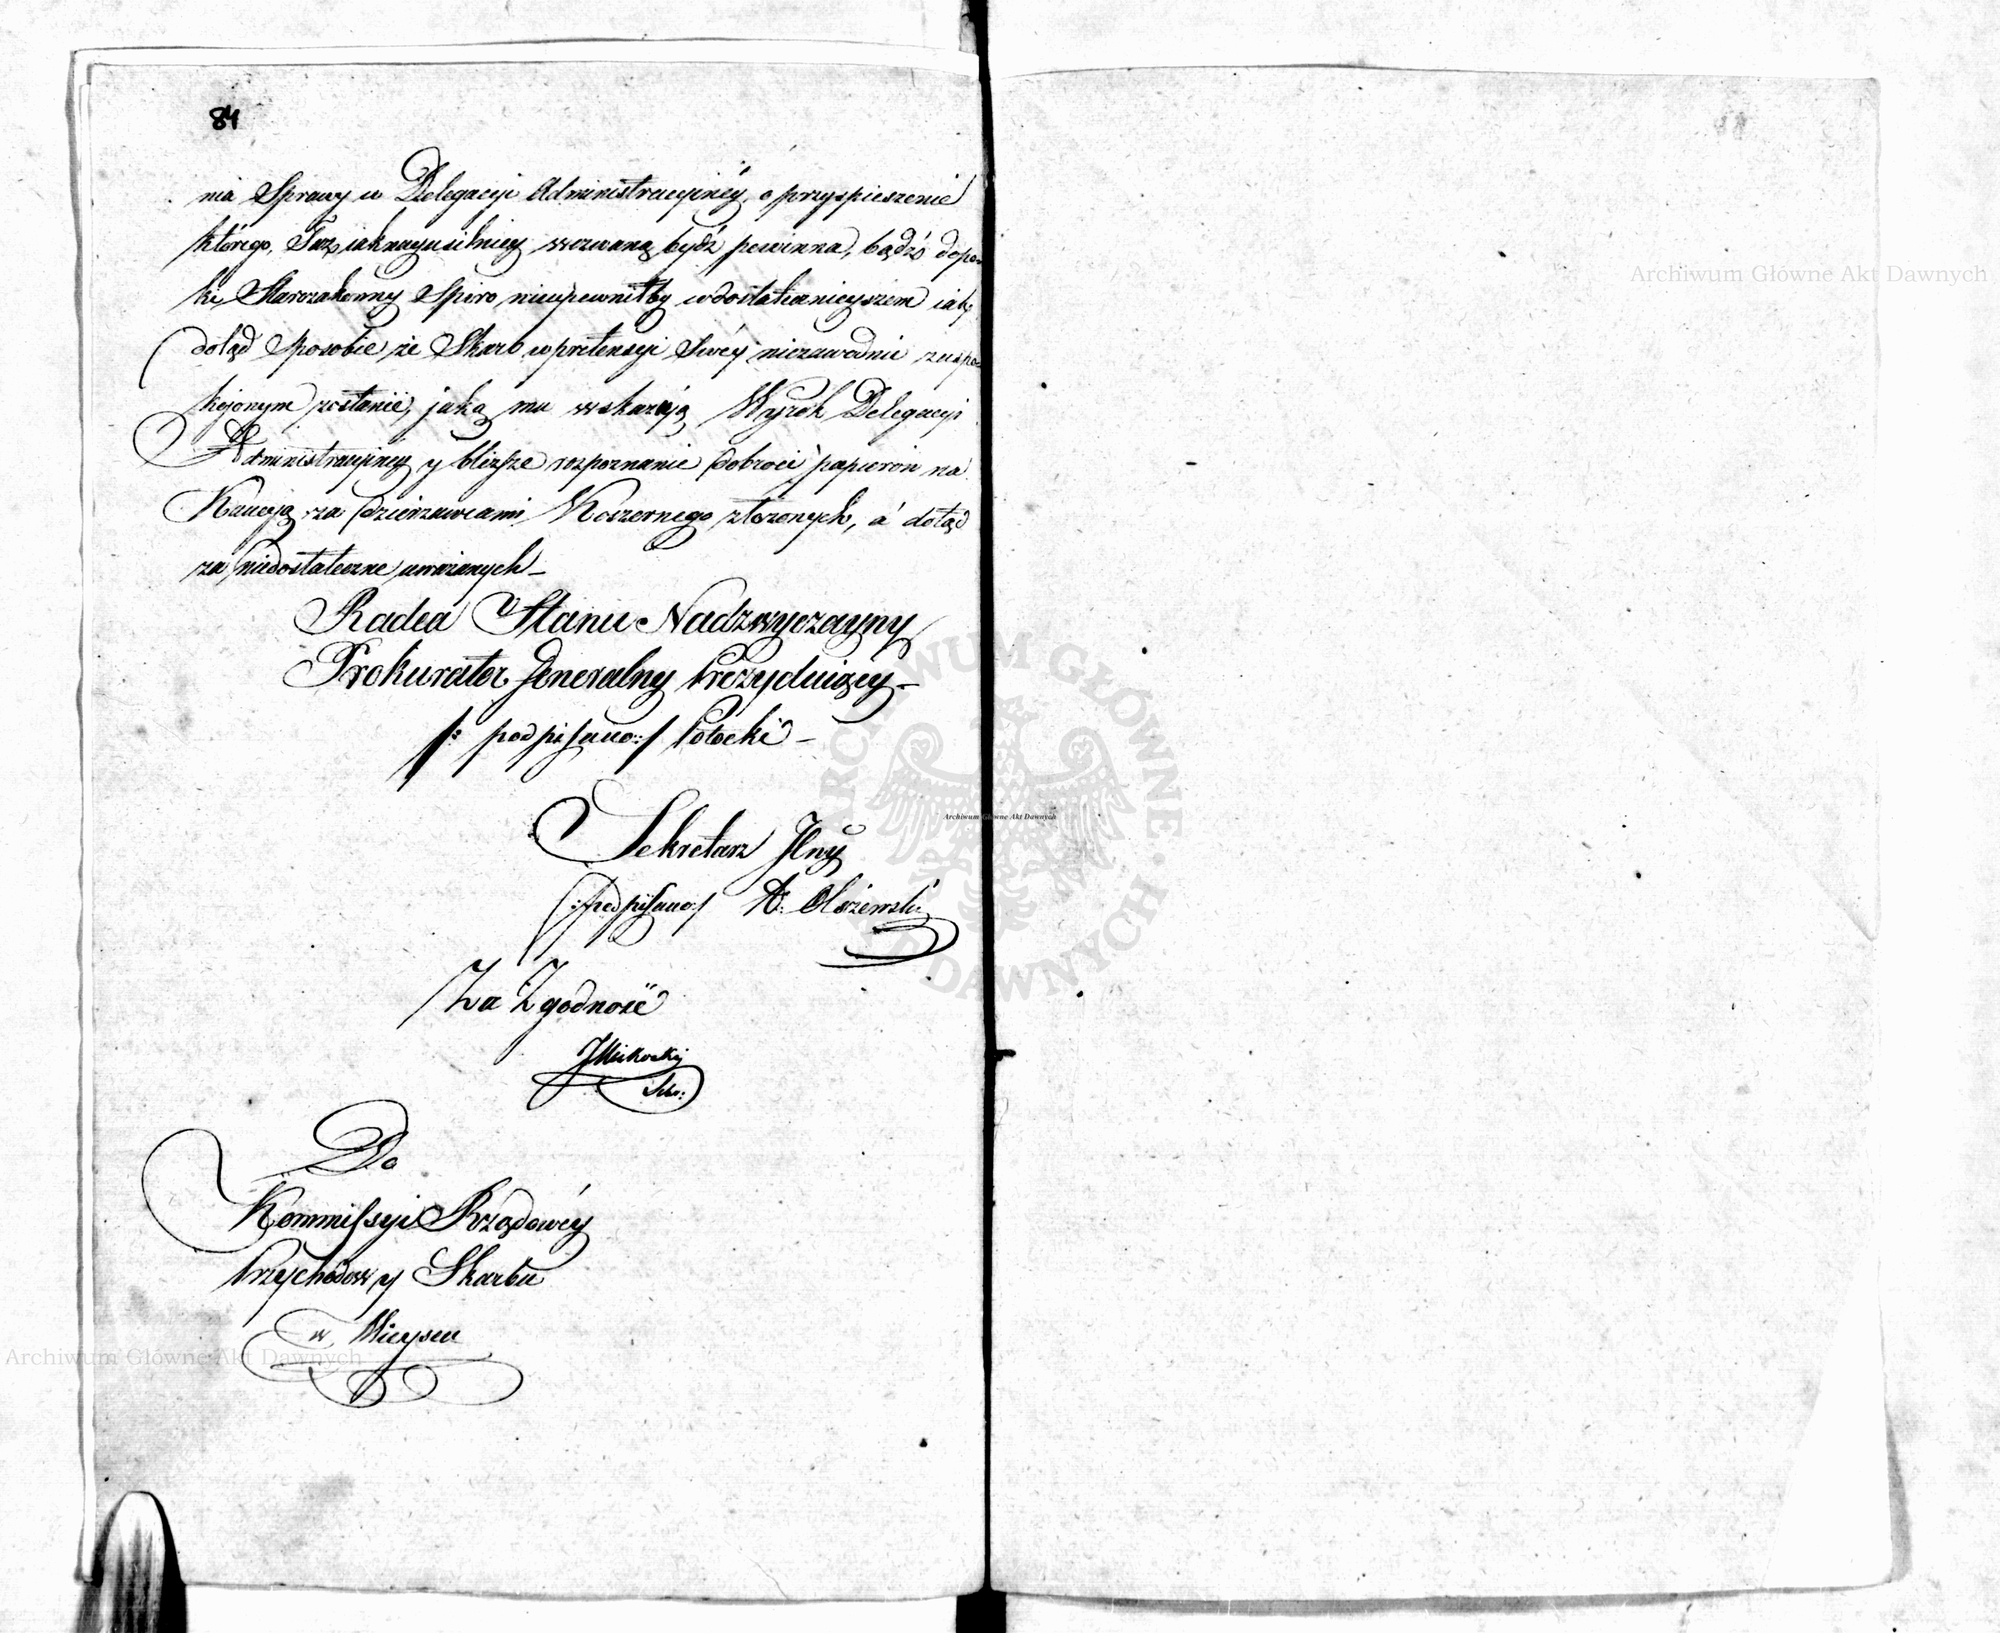 84
nia Sprawy w Delegacyi Administracyinéy, o przyspieszenie
którego, Taż iaknayusilniey wezwaną bydź powinna, bądźo dopo-
ki Starozakonny Spiro nieupewniłby w dostatecznieyszem iak
dotąd sposobie że Skarb w pretensyi Swéy niezawodnie zaspo-
kojonym zostanie, jaką mu wskazują Wyrok Delegacyi
Administracyiney y bliższe rozpoznanie dobroci papierów na
Kaucyą za dzierzawcami Koszernego złożonych, á dotąd
za niedostateczne uważanych –
Radca Stanu Nadzwyczayny
Prokurator Jeneralny Prezyduiący –
/: podpisano :/ Potocki –
Sekretarz Jlny
/: podpisano :/ A. Olszewski
Za Zgodność
Do
Kommissyi Rządowéy
Przychodow y Skarbu
w Mieyscu
Archiwum Główne Akt Dawnych
Archiwum Główne Akt Dawnych
Archiwum Główne Akt Dawnych
ARCHIWUM GŁÓWNE AKT DAWNYCH